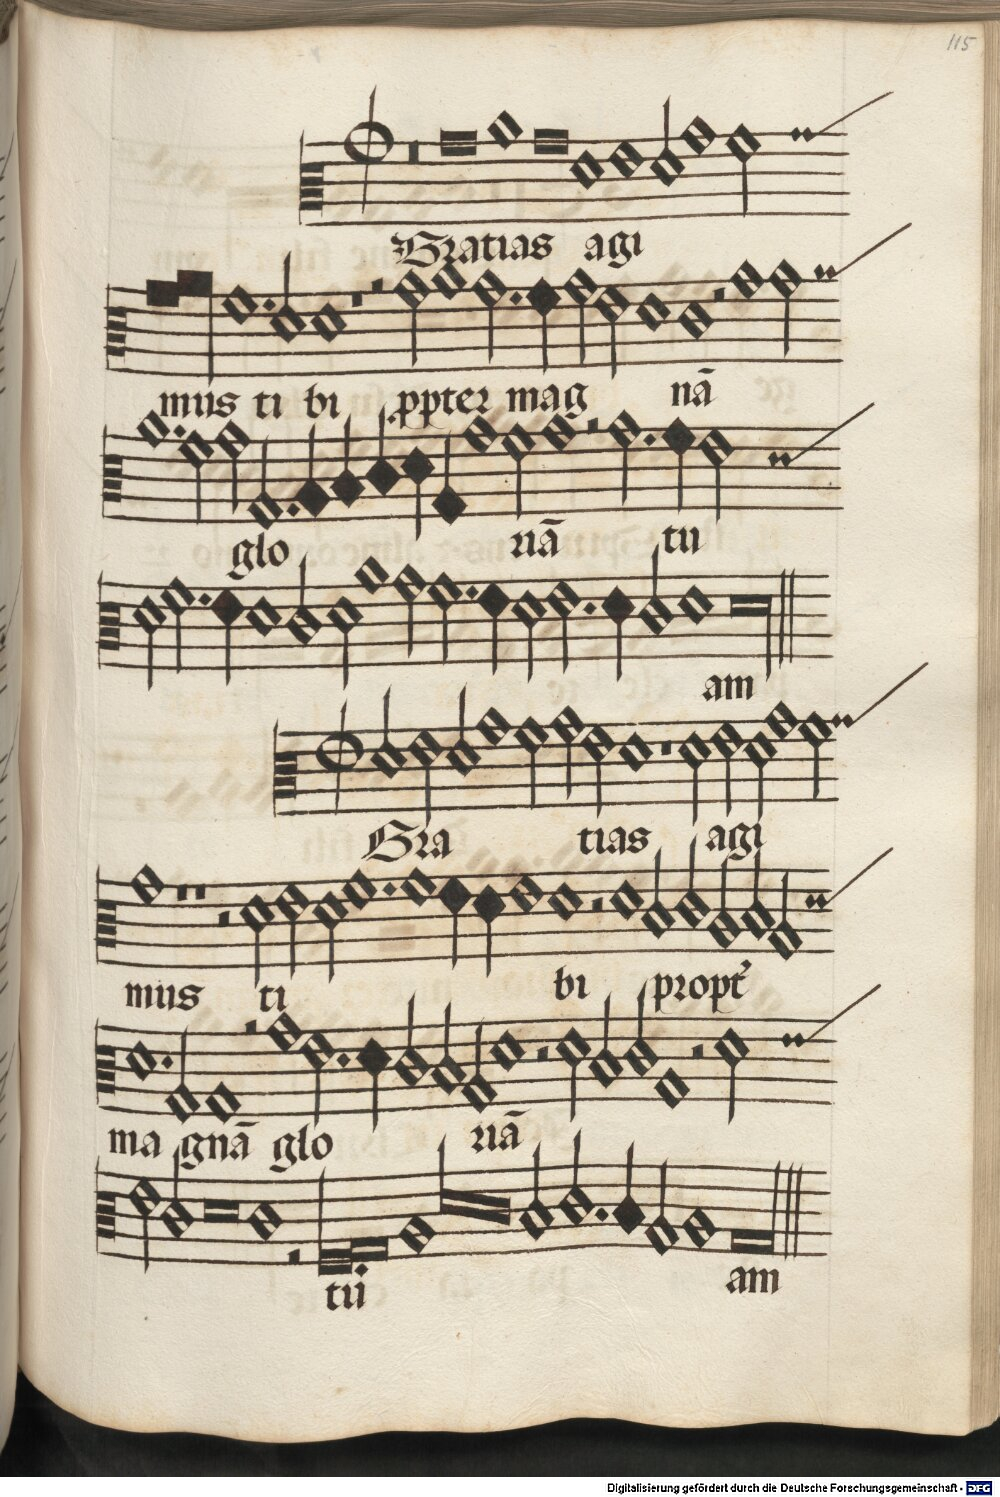 115
Gratias agi
mus ti bi ꝓpter mag nā
glo riā tu
am
Gra tias agi
mus ti bi propt᾿
ma gnā glo riā
tu am
Digitalisierung gefördert durch die Deutsche Forschungsgemeinschaft - DFG